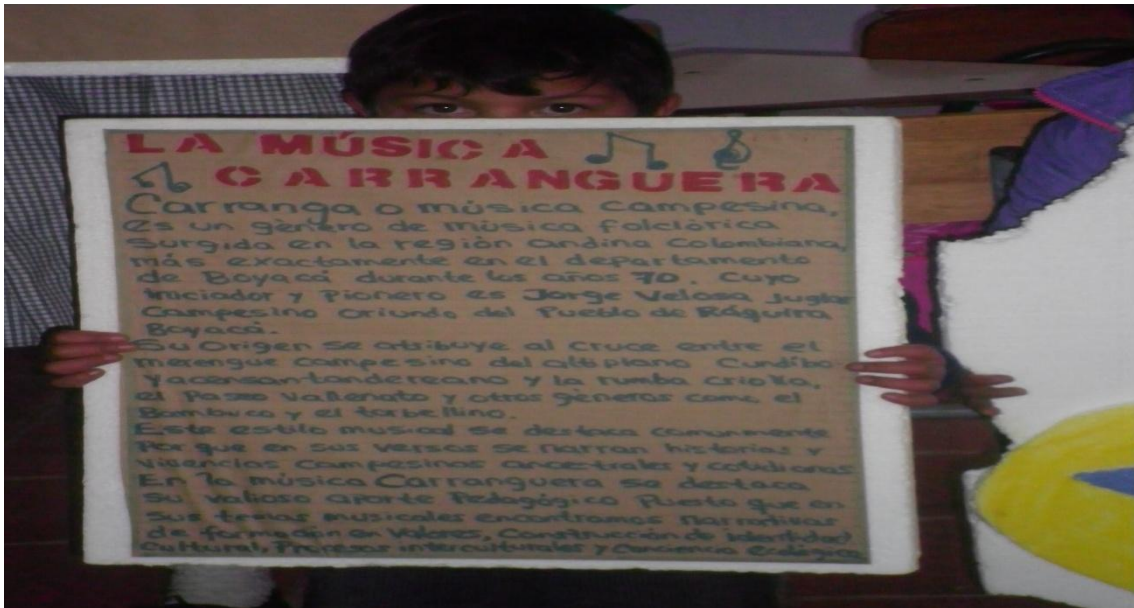 LA MÚSICA
CARRANGUERA
Carranga o música campesina,
es un gènero de música folclórica
Surgida en la región andina Colombiana,
más exactamente en el departamento
de Boyacá durante los años 70. Cuyo
iniciador y Pionero es Jorge Velosa juglar
Campesino oriundo del Pueblo de Ráquira
Boyacá.
Su Origen se atribuye al cruce entre el
merengue campesino del altiplano Cundibo
yacensantandereano y la rumba criolla,
el Paseo Vallenato y otros gèneros como el
Bambuco y el torbellino.
Este estilo musical se destaca comunmente
Por que en sus versos se narran historias y
vivencias Campesinas ancestrales y cotidianas
En la música Carranguera se destaca
su valioso aporte Pedagógico Puesto que en
sus temas musicales encontramos narrativas
de formación en valores, Construcción de identidad
Cultural, Procesos interculturales y Conciencia ecológica